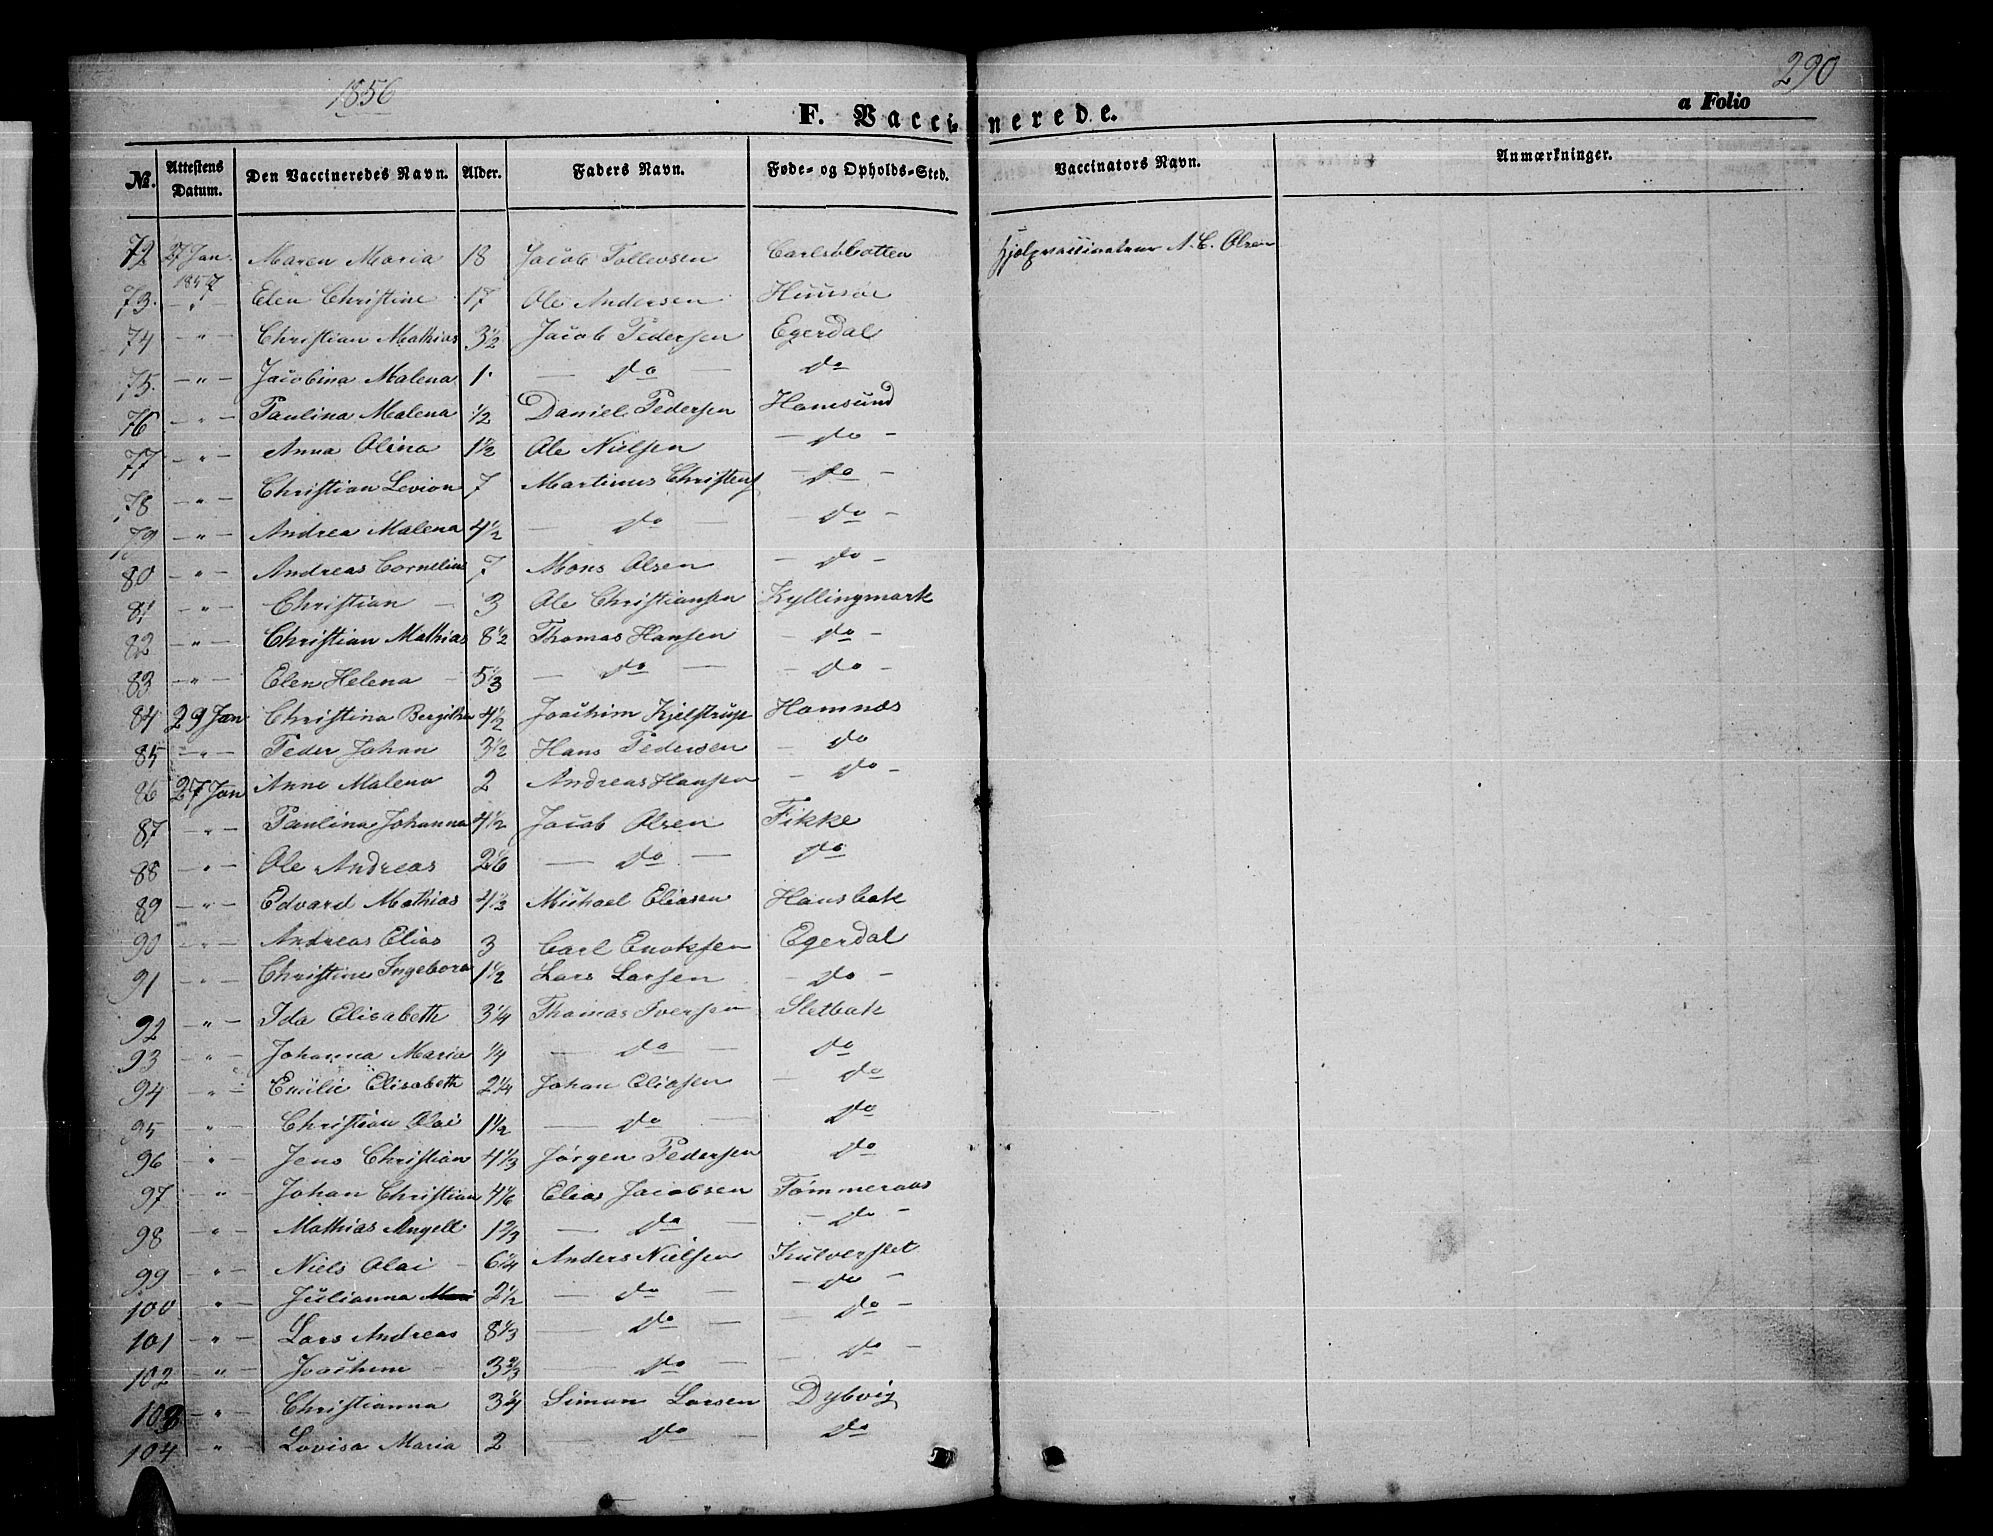 1856
290
F. Vaccinerede.
a Folio
No. Attestens Datum. Den Vaccineredes Navn. Alder. Faders Navn. Føde- og Opholds-Sted. Vaccinators Navn. Anmærkninger.
72 27 Jan. 1857 Maren Maria 18 Jacob Tollevsen Carlsøbotten Hjelpvaccinateur A. C. Olsen
73. - " - Elen Christine 17 Ole Andersen
74 - " - Christian Mathias 3 1/2 Jacob Pedersen Egerdal
75. - " - Jacobina Malena 1. - do - do
76 - " - Paulina Malena 1/2 Daniel Pedersen Hamsund
77 - " - Anna Olina 1 1/2 Ole Nielsen - do -
78 - " - Christian 7 Martinus Christens - do -
79 - " - Andrea Malena 4 1/2 - do - - do -
80 - " - Andreas Cornelius 7 Mons Olsen - do -
81 - " - Christian - 3 Ole Christiansen Kyllingmark
82 - " - Christian Mathias 8 1/2 Thomas Hansen - do -
83 - " - Elen Helena - 5 1/3 - do - - do -
84 29 Jan Christina Bergitha 4 1/2 Joachim Kjelstrup Hamnæs
85 - " - Peder Johan 3 1/2 Hans Pedersen - do
86 27 Jan Anne Malena 2 Andreas Hansen - do -
87 - " - Paulina Johanna 4 1/2 Jacob Olsen Fikke
88 - " - Ole Andreas 2 1/6 - do - do
89 - " - Edvard Mathias 4 1/3 Michael Eliasen Hansbak
90 - " - Andreas Elias 3 Carl Enoksen Egerdal
91 - " - Christine Ingeborg 1 1/2 Lars Larsen - do -
92 - " - Ida Elisabeth 3 1/4 Thomas Iversen Sletbak
93 - " - Johanna Maria 1/4 - do - do
94 " - Emilie Elisabeth 2 1/4 Johan Eliasen - do
95 " Christian Olai 1 1/2 - do - do
96 " Jens Christian 4 1/3 Jørgen Pedersen do
97 - " Johan Christian 4 1/6 Elias Jacobsen Tømmeraas
98 " - Mathias Angell 1 2/3 - do - - do -
99 - " - Niels Olai - 6 1/4 Anders Nielsen Kulverslet
100 " - Julianna 2 1/2 - do - - do -
101 " - Lars Andreas 8 1/3 - do - - do -
102 - " - Joachim - 3 2/3 - do - - do -
103 - " - Christianna 3 1/4 Simon Larsen Dybvig
104 - " - Lovisa Maria 2 - do - do